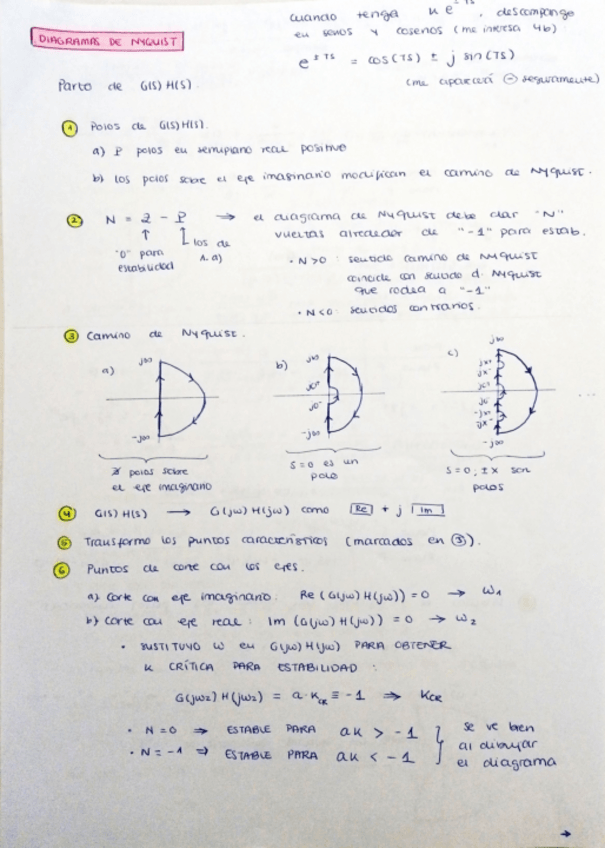 cuando tenga K e^±TS, descompongo
en senos y cosenos (me interesa 4b)
DIAGRAMAS DE NYQUIST
e^±TS = cos(TS) ± j sin(TS)
(me aparecerá ⊖ seguramente)
Parto de G(S)H(S).
① Polos de G(S)H(S).
a) P polos en semiplano real positivo
b) los polos sobre el eje imaginario modifican el camino de Nyquist.
② N = Z - P → el diagrama de Nyquist debe dar "N"
vueltas alrededor de "-1" para estab.
"0" para estabilidad
los de 1.a)
· N>0: sentido camino de Nyquist
coincide con sentido d. Nyquist
que rodea a "-1"
· N<0: sentidos contrarios.
③ Camino de Nyquist.
a) j∞ -j∞
∄ polos sobre
el eje imaginario
b) j∞ j0⁺ j0⁻ -j∞
S=0 es un
polo
c) j∞ jx⁺ jx⁻ j0⁺ j0⁻ -jx⁺ -jx⁻ -j∞
S=0, ±x son
polos
④ G(S)H(S) → G(jω)H(jω) como Re + j Im
⑤ Transformo los puntos característicos (marcados en ③).
⑥ Puntos de corte con los ejes.
a) Corte con eje imaginario: Re(G(jω)H(jω))=0 → ω₁
b) Corte con eje real: Im(G(jω)H(jω))=0 → ω₂
· SUSTITUYO ω EN G(jω)H(jω) PARA OBTENER
K CRÍTICA PARA ESTABILIDAD:
G(jω₂)H(jω₂) = a·K_CR ≡ -1 ⇒ K_CR
· N=0 ⇒ ESTABLE PARA aK > -1
· N=-1 ⇒ ESTABLE PARA aK < -1
se ve bien
al dibujar
el diagrama
→